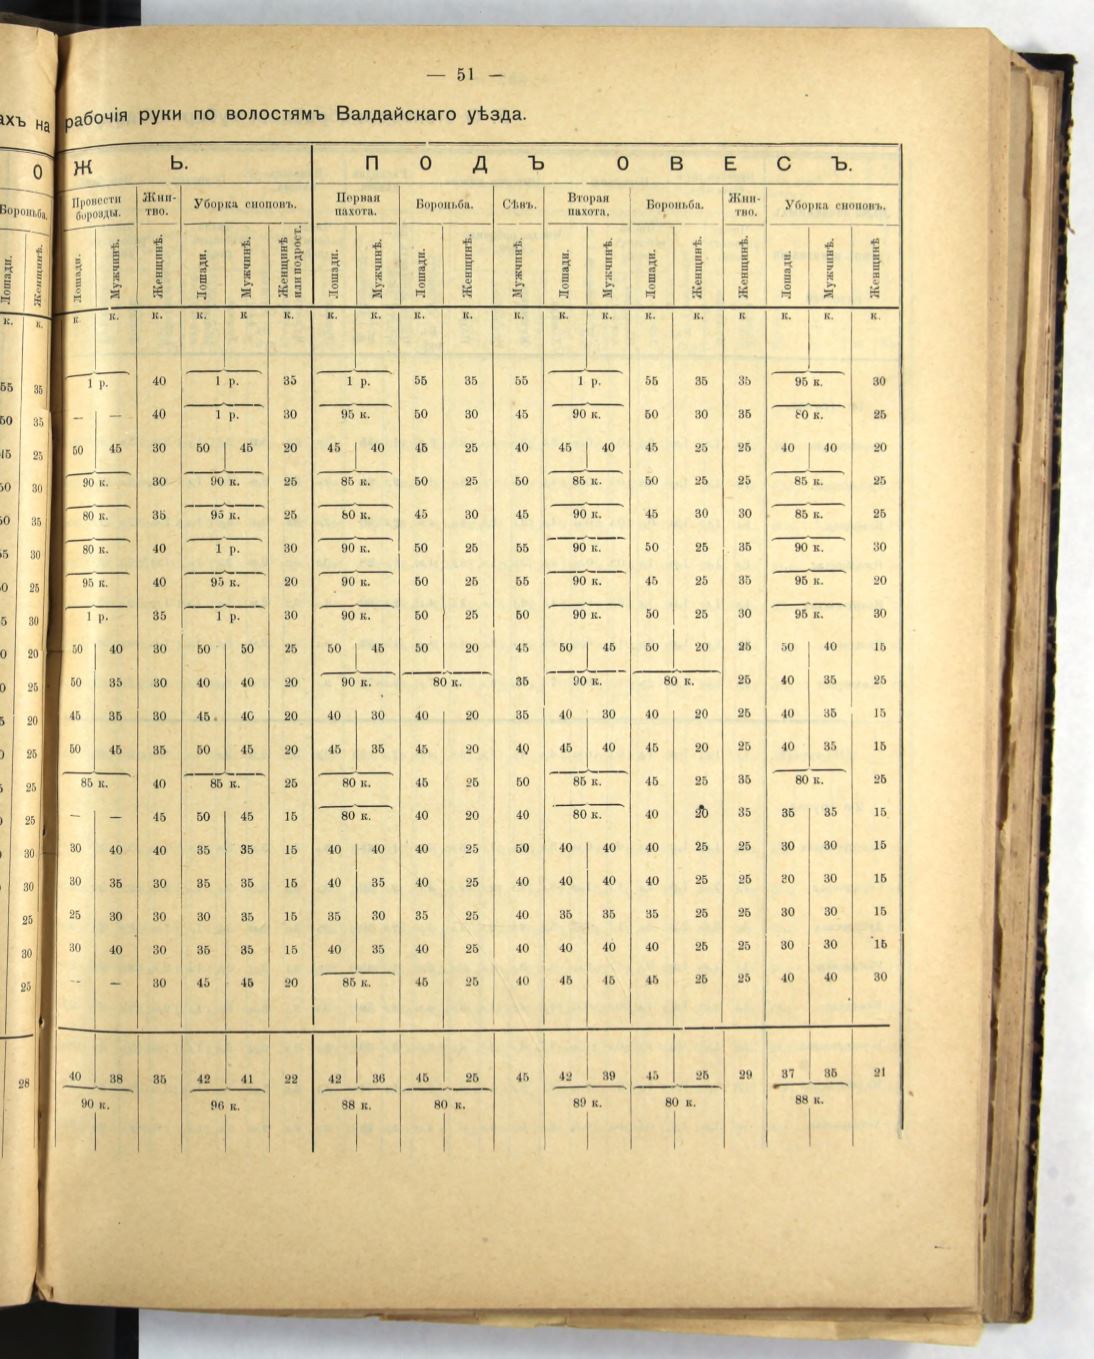 — 51 —
ахъ на рабочія руки по волостямъ Валдайскаго уѣзда.
О Ж Ь. П О Д Ъ О В Е С Ъ.
Бороньба. Провести борозды. Жни-тво. Уборка сноповъ. Первая пахота. Бороньба. Сѣвъ. Вторая пахота. Бороньба. Жни-тво. Уборка сноповъ.
Лошади. Женщинѣ. Лошади. Мужчинѣ. Женщинѣ. Лошади. Мужчинѣ. Женщинѣ или подрост. Лошади. Мужчинѣ. Лошади. Женщинѣ. Мужчинѣ. Лошади. Мужчинѣ. Лошади. Женщинѣ. Женщинѣ. Лошади. Мужчинѣ. Женщинѣ
к. к. к. к. к. к. к к. к. к. к. к. к. к. к. к. к. к. к. к. к.
55 35 1 р. 40 1 р. 35 1 р. 55 35 55 1 р. 55 35 35 95 к. 30
50 35 — — 40 1 р. 30 95 к. 50 30 45 90 к. 50 30 35 80 к. 25
45 25 50 45 30 50 45 20 45 40 45 25 40 45 40 45 25 25 40 40 20
50 30 90 к. 30 90 к. 25 85 к. 50 25 50 85 к. 50 25 25 85 к. 25
35 80 к. 35 95 к. 25 80 к. 45 30 45 90 к. 45 30 30 85 к. 25
30 80 к. 40 1 р. 30 90 к. 50 25 55 90 к. 50 25 35 90 к. 30
25 95 к. 40 95 к. 20 90 к. 50 25 55 90 к. 45 25 35 95 к. 20
30 1 р. 35 1 р. 30 90 к. 50 25 50 90 к. 50 25 30 95 к. 30
20 50 40 30 50 50 25 50 45 50 20 45 50 45 50 20 25 50 40 15
25 50 35 30 40 40 20 90 к. 80 к. 35 90 к. 80 к. 25 40 35 25
20 45 35 30 45 40 20 40 30 40 20 35 40 30 40 20 25 40 35 15
25 50 45 35 50 45 20 45 35 45 20 40 45 40 45 20 25 40 35 15
25 85 к. 40 85 к. 25 80 к. 45 25 50 85 к. 45 25 35 80 к. 25
25 — — 45 50 45 15 80 к. 40 20 40 80 к. 40 20 35 35 35 15
30 30 40 40 35 35 15 40 40 40 25 50 40 40 40 25 25 30 30 15
30 30 35 30 35 35 15 40 35 40 25 40 40 40 40 25 25 30 30 15
25 25 30 30 30 35 15 35 30 35 25 40 35 35 35 25 25 30 30 15
30 30 40 30 35 35 15 40 35 40 25 40 40 40 40 25 25 30 30 15
25 — — 30 45 45 20 85 к. 45 25 40 45 45 45 25 25 40 40 30
28 40 38 35 42 41 22 42 36 45 25 45 42 39 45 25 29 37 35 21
90 к. 96 к. 88 к. 80 к. 89 к. 80 к. 88 к.